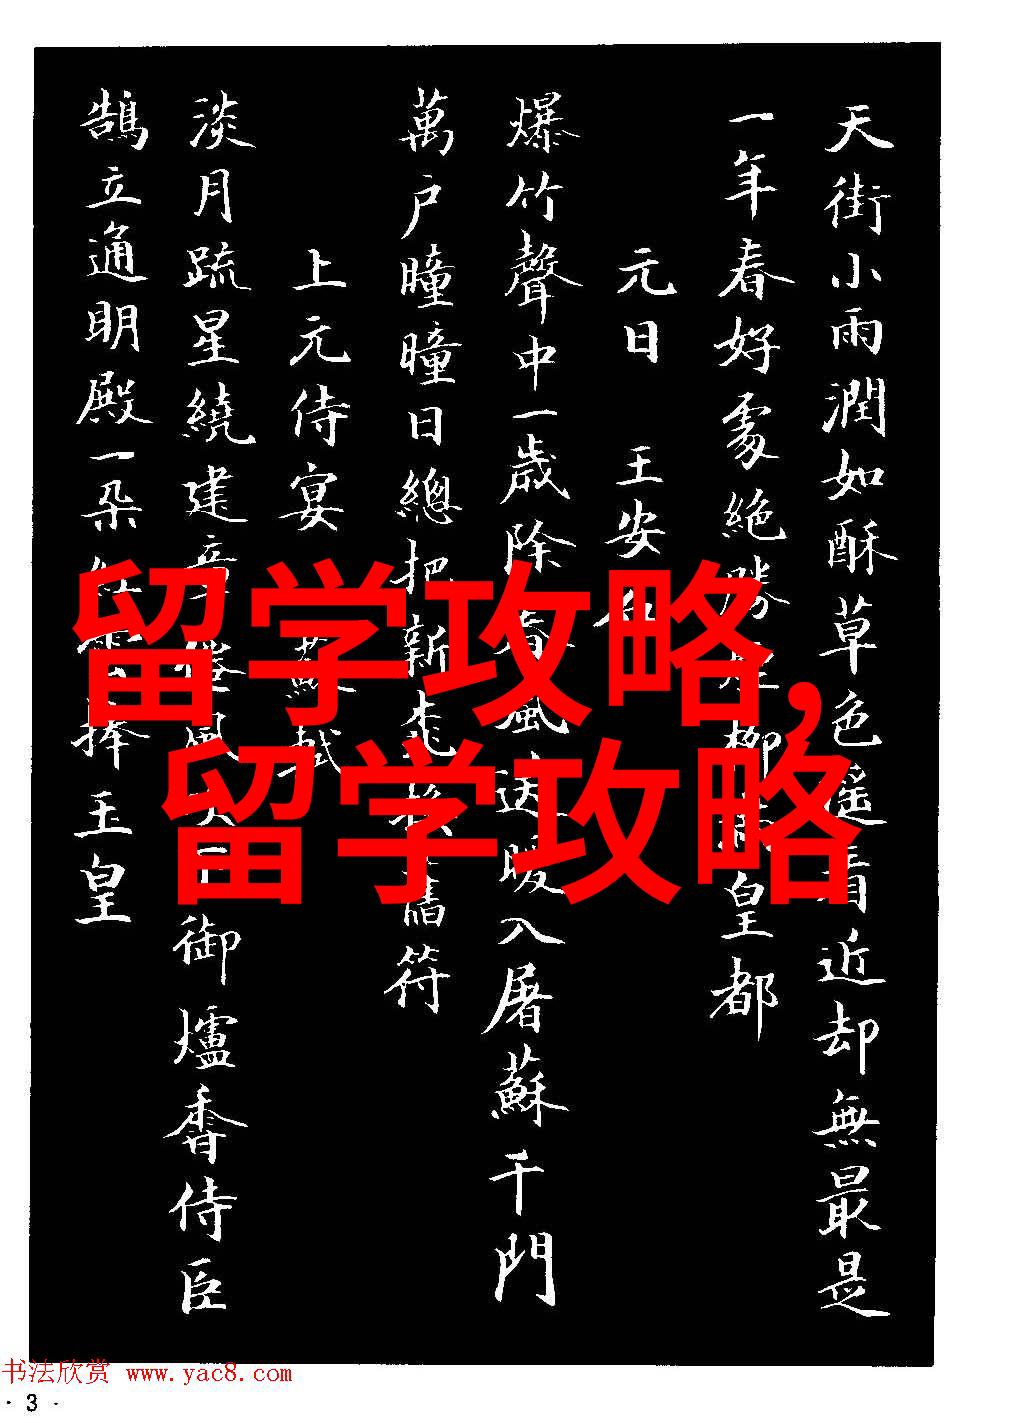 天街小雨潤如酥草色遥看近却無最是
一年春好處絶勝柳皇都
元日 王安
爆竹聲中一歲除春風送暖入屠蘇千門
萬户曈曈日總把新桃换舊符
上元侍宴 蘇軾
淡月疏星繞建章風御爐香侍臣
鵠立通明殿一朵紅雲捧玉皇
留学攻略,
留学攻略
书法欣赏 www.yac8.com
· 3 ·